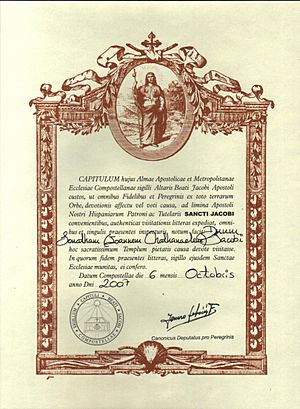 CAPITULUM hujus Almae Apostolicae et Metropolitanae
Ecclesiae Compostellanae sigilli Altaris Beati Jacobi Apostoli
custos, ut omnibus Fidelibus et Peregrinis ex toto terrarum
Orbe, devotionis affectu vel voti causa, ad limina Apostoli
Nostri Hispaniarum Patroni ac Tutelaris SANCTI JACOBI
convenientibus, authenticas visitationis litteras expediat, omni-
bus et singulis praesentes inspecturis, notum facit
Jacobi
hoc sacratissimum Templum pietatis causa devote visitasse.
In quorum fidem praesentes litteras, sigillo ejusdem Sanctae
Ecclesiae munitas, ei confero.
Datum Compostellae die 6 mensis Octobris
anno Dni 2007
Canonicus Deputatus pro Peregrinis